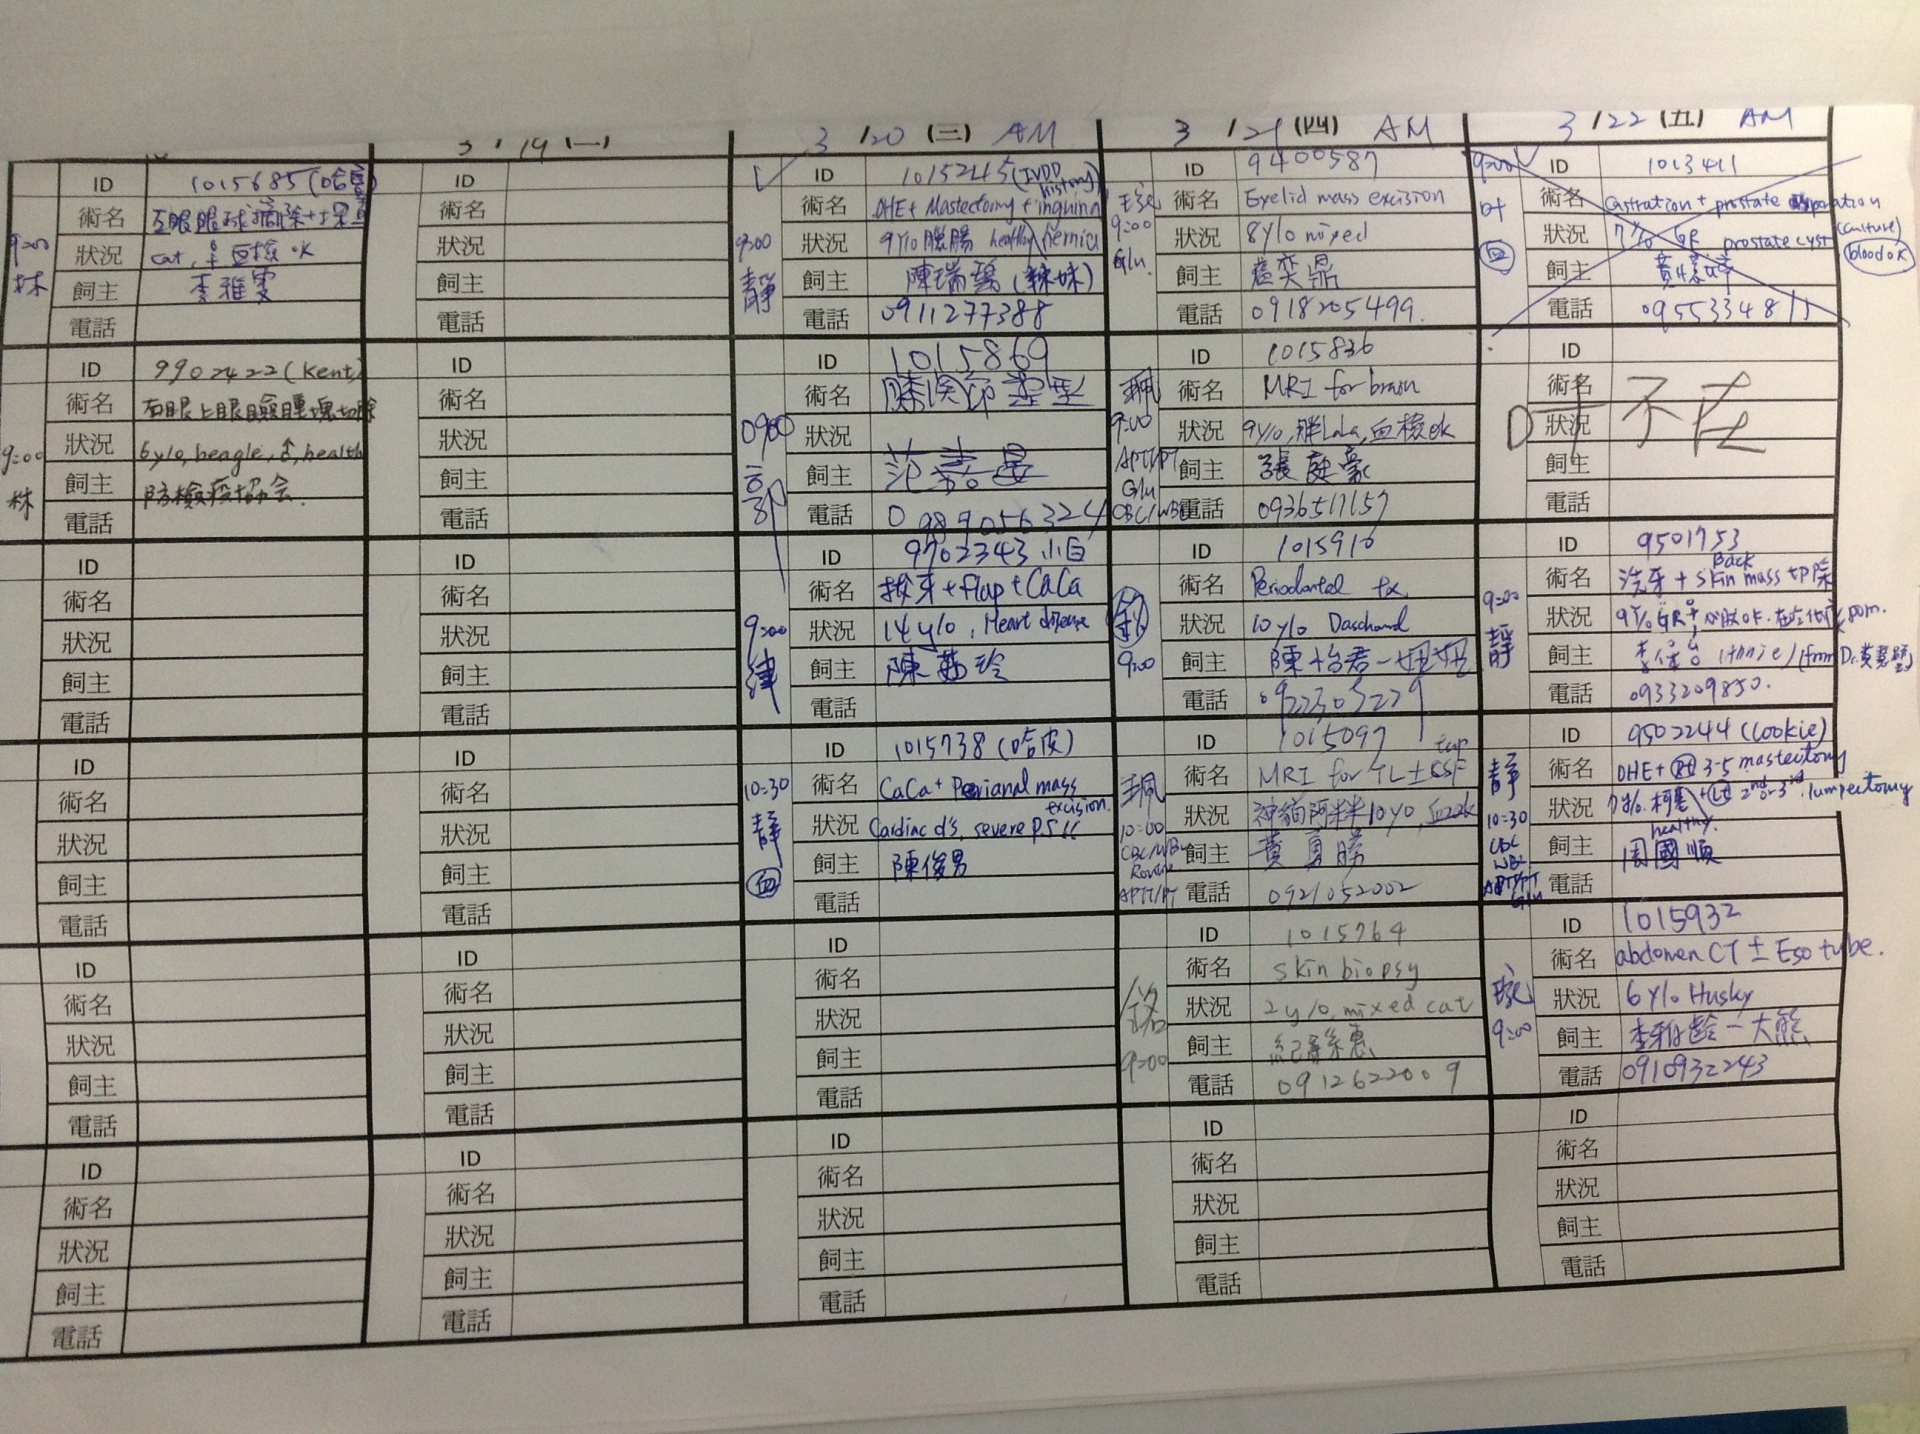 3 / 19 (一)
3 / 20 (三) AM
3 / 21 (四) AM
3 / 22 (五) AM
9:00
林
ID 1015685
術名
狀況 cat, 血檢 ok
飼主 李雅雯
電話
9:00
林
ID 9902422 (Kent)
術名 右眼上眼瞼腫塊切除
狀況 6y/o, beagle, ♂, health
飼主 防檢疫協會.
電話
ID
術名
狀況
飼主
電話
ID
術名
狀況
飼主
電話
ID
術名
狀況
飼主
電話
ID
術名
狀況
飼主
電話
ID
術名
狀況
飼主
電話
ID
術名
狀況
飼主
電話
ID
術名
狀況
飼主
電話
ID
術名
狀況
飼主
電話
ID
術名
狀況
飼主
電話
ID
術名
狀況
飼主
電話
9:00
靜
ID 1015245 (IVDD history)
術名 OHE + Mastectomy + inguinal
狀況 9y/o 臘腸 healthy hernia
飼主 陳瑞 (辣妹)
電話 0911277388
0900
郭
ID 1015869
術名
狀況
飼主 范嘉晏
電話 0989056324
9:00
律
ID 9702343 小白
術名 拔牙 + flap + CaCa
狀況 14 y/o, Heart disease
飼主 陳茹玲
電話
10:30
靜
血
ID 1015738 (哈皮)
術名 CaCa + Perianal mass excision.
狀況 Cardiac d's, severe P.S!!
飼主 陳俊男
電話
ID
術名
狀況
飼主
電話
ID
術名
狀況
飼主
電話
9:00
Glu.
ID 9400587
術名 Eyelid mass excision
狀況 8y/o mixed
飼主 奕鼎
電話 0918205499.
珮
9:00
APTT/PT
Glu
CBC/WBC
ID 1015836
術名 MRI for brain
狀況 9y/o, 胖LaLa, 血檢ok
飼主 張庭豪
電話 0936517157
9:00
ID 1015916
術名 Periodontal tx
狀況 10 y/o Daschund
飼主 陳怡君-妞妞
電話 0922305229
珮
10:00
CBC/WBC
APTT/PT
ID 1015097
術名 MRI for TL ± CSF tap
狀況 10yo, 血ok
飼主 黃勝
電話 0921052002
銘
9:00
ID 1015764
術名 skin biopsy
狀況 2y/o, mixed cat
飼主
電話 0912622009
ID
術名
狀況
飼主
電話
9:00
叶
血
ID 1013411
術名 Castration + prostate operation
狀況 7y/o GR prostate cyst (culture)
blood ok
飼主
電話 0955334811
ID
術名
狀況 不在
飼主
電話
9:00
靜
ID 9501753
術名 洗牙 + Back skin mass 切除
狀況 9y/o GR
飼主
電話 0933209850.
靜
10:30
CBC
WBC
APTT/PT
Glu
ID 9502244 (Cookie)
術名 OHE + Rt 3-5 mastectomy
狀況 + Lt 2nd or 3rd lumpectomy
healthy.
飼主 周國順
電話
9:00
ID 1015932
術名 abdomen CT ± Eso tube.
狀況 6 y/o Husky
飼主 李雅齡-大熊
電話 0910932243
ID
術名
狀況
飼主
電話